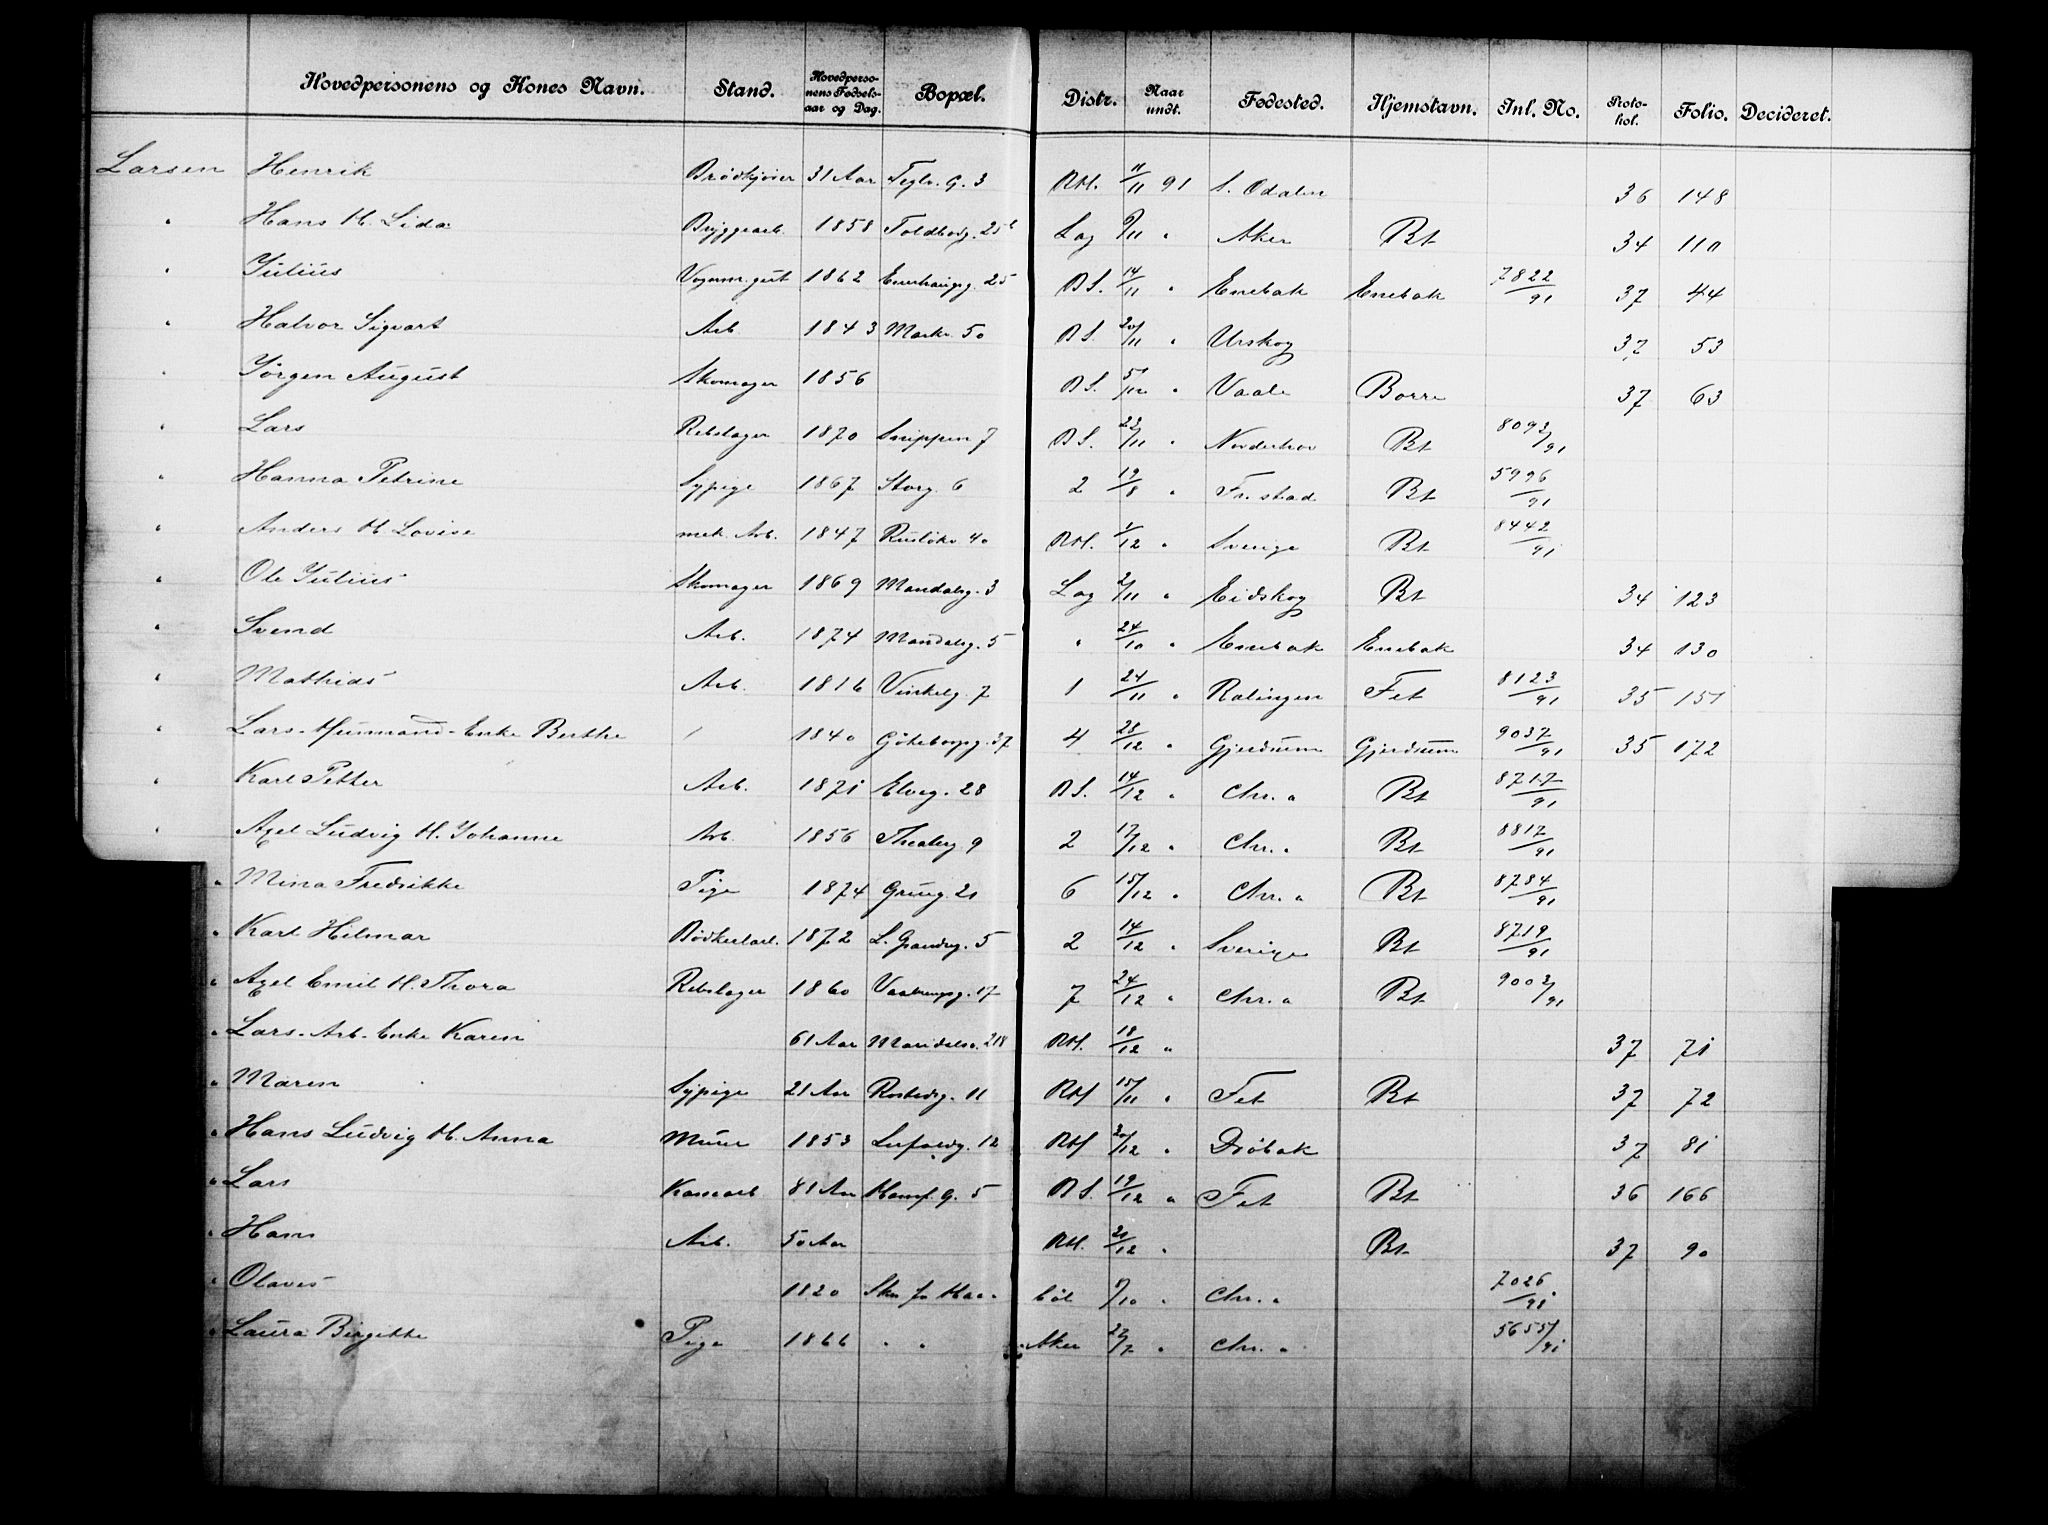 Hovedpersonens og Kones Navn. Stand. Hovedpersonens Fødselsaar og Dag. Bopæl. Distr. Naar undt. Fødested. Hjemstavn. Inl. No. Protokol. Folio. Decideret.
Larsen Henrik Brødkjører 31 Aar Teglv. G. 3 RH. 11/11 91 S. Odalen 36 148
" Hans H. Lida Bryggearb. 1858 Toldbodg. 25b Lag 9/11 " Aker Bt 34 110
" Julius Vognm.gut 1862 Enerhaugsg. 25 BS. 14/11 " Enebak Enebak 7822/91 37 44
" Halvor Sigvart Arb. 1843 Markv. 50 BS. 20/11 " Urskog 37 53
" Jørgen August Skomager 1856 BS. 5/12 " Vaale Borre 37 63
" Lars Rebslager 1870 Snippen 7 BS. 23/11 " Norderhov Bt 8092/91
" Hanna Petrine Sypige 1867 Storg. 6 2 19/8 " Fr.stad Bt 5996/91
" Anders H. Lovise mek. Arb. 1847 Rusløkv 40 RH. 1/12 " Sverige Bt 8442/91
" Ole Julius Skomager 1869 Mandalsg. 3 Lag 2/11 " Eidskog Bt 34 123
" Svend Arb. 1874 Mandalsg. 5 " 24/10 " Enebak Enebak 34 130
" Mathias Arb. 1816 Vinkelg. 7 1 24/11 " Rælingen Fet 8123/91 35 151
" Lars - Husmand - Enke Berthe / 1840 Göteborgg. 37 4 28/12 " Gjerdrum Gjerdrum 9037/91 35 172
" Karl Petter Arb. 1871 Elveg. 28 BS. 14/12 " Chr.a Bt 8717/91
" Axel Ludvig H. Johanne Arb. 1856 Theaterg 9 2 17/12 " Chr.a Bt 8817/91
" Mina Fredrikke Pige 1874 Grünerg. 21 6 15/12 " Chr.a Bt 8734/91
" Karl Hilmar Bødkerlærl. 1872 L. Grændsg. 5 2 14/12 " Sverige Bt 8719/91
" Axel Emil H. Thora Rebslager 1860 Vaalerengsg. 17 7 24/12 " Chr.a Bt 9003/91
" Lars - Arb. Enke Karen 61 Aar Maridalsv. 218 RH. 18/12 " 37 71
" Maren Sypige 21 Aar Rostedsg. 11 RH 15/11 " Fet Bt 37 72
" Hans Ludvig H. Anna Murer 1853 12 RH 20/12 " Drøbak 37 81
" Lars Kornarb 81 Aar Hamf. G. 5 BS. 19/12 " Fet Bt 36 166
" Hans Arb. 50 Aar RH. 21/12 " Bt 37 90
" Olaves 1820 9/10 " Chr.a 7026/91
" Laura Birgitte Pige 1866 " " Aker 22/7 " Chr.a 5655/91